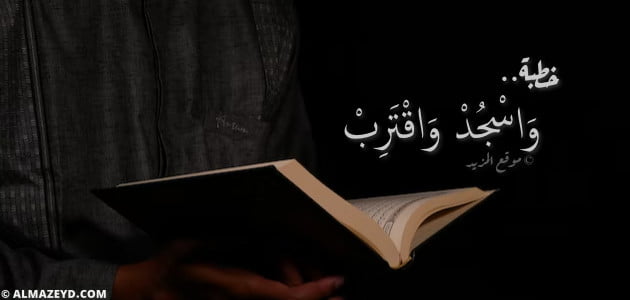 خطبة..
وَاسْجُدْ وَاقْتَرِبْ
© موقع المزيد
© ALMAZEYD.COM